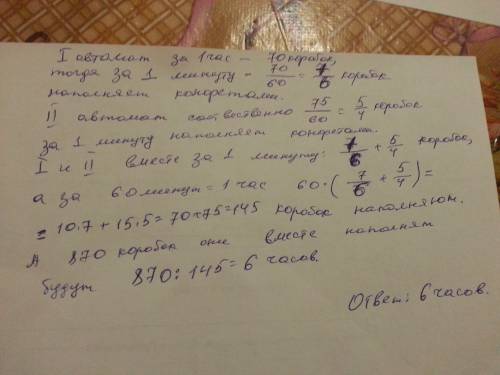 I автомат за 1 час – 70 коробок,
тогда за 1 минуту – 70/60 = 7/6 коробок
наполняет конфетами.
II автомат соответственно 75/60 = 5/4 коробок
за 1 минуту наполняет конфетами.
I и II вместе за 1 минуту: 7/6 + 5/4 коробок,
а за 60 минут = 1 час 60·(7/6 + 5/4) =
= 10·7 + 15·5 = 70+75=145 коробок наполняют.
А 870 коробок они вместе наполнят
будут 870 : 145 = 6 часов.
Ответ: 6 часов.